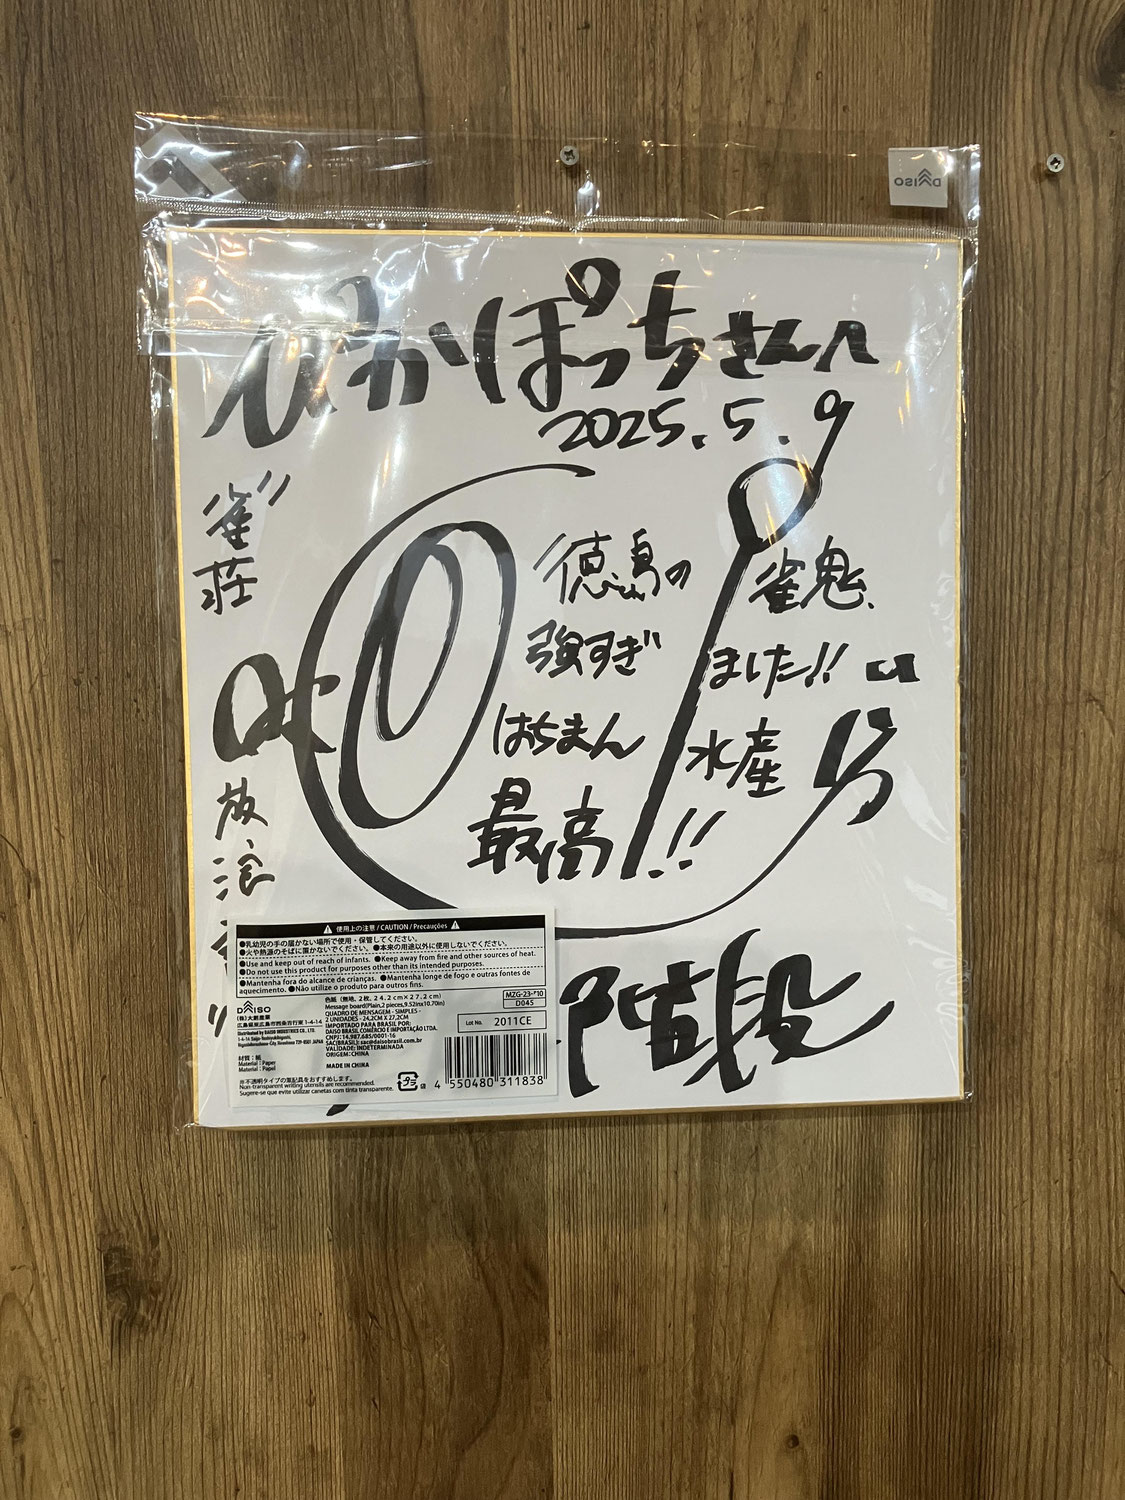 DAISO
ひかりぽっちさんへ
2025.5.9
徳島の雀鬼、
強すぎました!!
はちまん水産
最高!!
雀荘
放浪
⚠ 使用上の注意 / CAUTION / Precauções ⚠
●乳幼児の手の届かない場所で使用・保管してください。
●火や熱源のそばに置かないでください。 ●本来の用途以外に使用しないでください。
●Use and keep out of reach of infants. ●Keep away from fire and other sources of heat.
●Do not use this product for purposes other than its intended purposes.
●Mantenha fora do alcance de crianças. ●Mantenha longe de fogo e outras fontes de
aquecimento. ●Não utilize o produto para outros fins.
DAISO
(株)大創産業
広島県東広島市西条吉行東 1-4-14
Distributed by DAISO INDUSTRIES CO., LTD.
1-4-14 Saijo-Yoshiyukihigashi,
Higashihiroshima-City, Hiroshima 739-8501 JAPAN
材質:紙
Material : Paper
Material : Papel
色紙(無地、2枚、24.2cm×27.2cm)
Message board(Plain,2 pieces,9.52inx10.70in)
QUADRO DE MENSAGEM - SIMPLES -
2 UNIDADES - 24,2CM X 27,2CM
IMPORTADO PARA BRASIL POR:
DAISO BRASIL COMÉRCIO E IMPORTAÇÃO LTDA.
CNPJ: 14.987.685/0001-16
SAC(BRASIL): sac@daisobrasil.com.br
VALIDADE: INDETERMINADA
ORIGEM:CHINA
MADE IN CHINA
D045
Lot No. 2011CE
プラ
袋
4 550480 311838
※不透明タイプの筆記具をおすすめします。
Non-transparent writing utensils are recommended.
Sugere-se que evite utilizar canetas com tinta transparente.